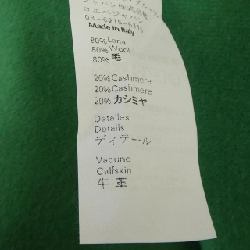 Made in Italy
80% Lana
80% Wool
80% 毛
20% Cashmere
20% Cashmere
20% カシミヤ
Detalles
Details
ディテール
Vacuno
Calfskin
牛革